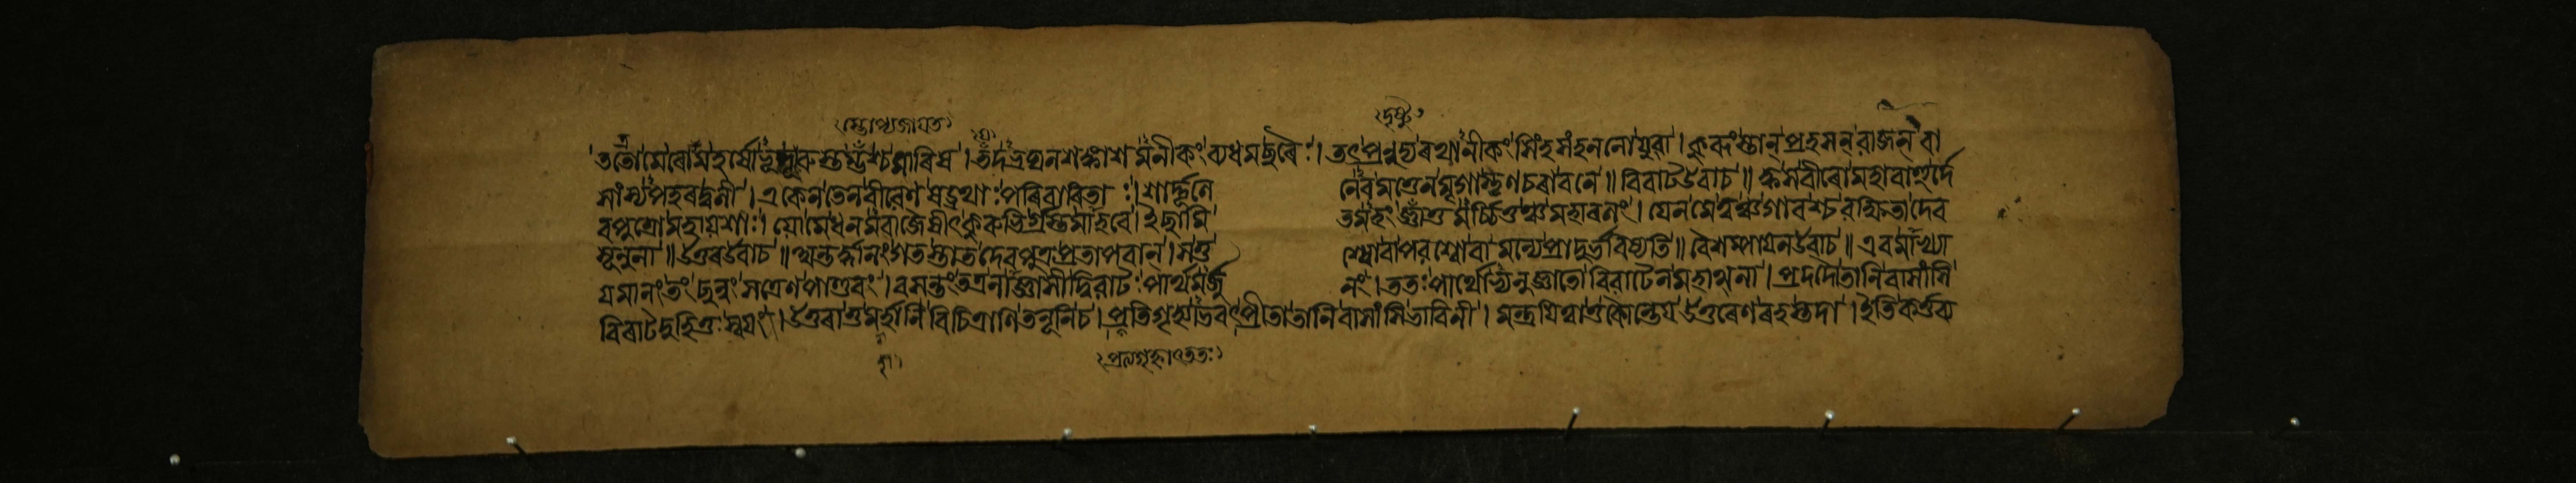 স্তম্ভোপ্যজায়ত দৃষ্ট্বা
ততো মে রোমহর্ষোভূদূরুস্তম্ভশ্চ মারিষ । তদভ্রঘনশঙ্কাশমনীকং ব্যধমচ্ছরৈঃ । তৎপ্রনুদ্য রথানীকং সিংহসংহননো যুবা । কুরূংস্তান্ প্রহসন্ রাজন্ বা
সাংস্যপহরদ্বলী । একেন তেন বীরেণ ষড্রথাঃ পরিবারিতাঃ । শার্দ্দূলেনেব মত্তেন মৃগাস্তৃণচরা বনে ॥ বিরাট উবাচ ॥ ক্ব স বীরো মহাবাহুর্দে
বপুত্রো মহায়শাঃ । যো মে ধনমবাজৈষীৎ কুরুভির্গ্রস্তমাহবে । ইছামি তমহং দ্রষ্টুমর্চ্চিতুঞ্চ মহাবলং । যেন মে ত্বঞ্চ গাবশ্চ রক্ষিতা দেব
সূনুনা ॥ উত্তর উবাচ ॥ অন্তর্দ্ধানং গতস্তাত দেবপুত্র প্রতাপবান্ । স তু শ্বো বা পরশ্বো বা মন্যে প্রাদুর্ভবিষ্যতি ॥ বৈশম্পায়ন উবাচ ॥ এবমাখ্যা
যমানং তং ছন্নং সত্রেণ পাণ্ডবং । বসন্তং তত্র নাজ্ঞাসীদ্বিরাটঃ পার্থমর্জুনং । ততঃ পার্থোভ্যনুজ্ঞাতো বিরাটেন মহাত্মনা । প্রদদৌ তানি বাসাংসি
বিরাটদুহিতুঃ স্বয়ং । উত্তরা তু মহার্হাণি বিচিত্রাণি তনূনি চ । প্রতিগৃহ্যাভবৎপ্রীতা তানি বাসাংসি ভাবিনী । মন্ত্রয়িত্বা তু কৌন্তেয় উত্তরেণ রহস্তদা । ইতিকর্ত্তব্য
প্রত্যগৃহ্ণাৎততঃ